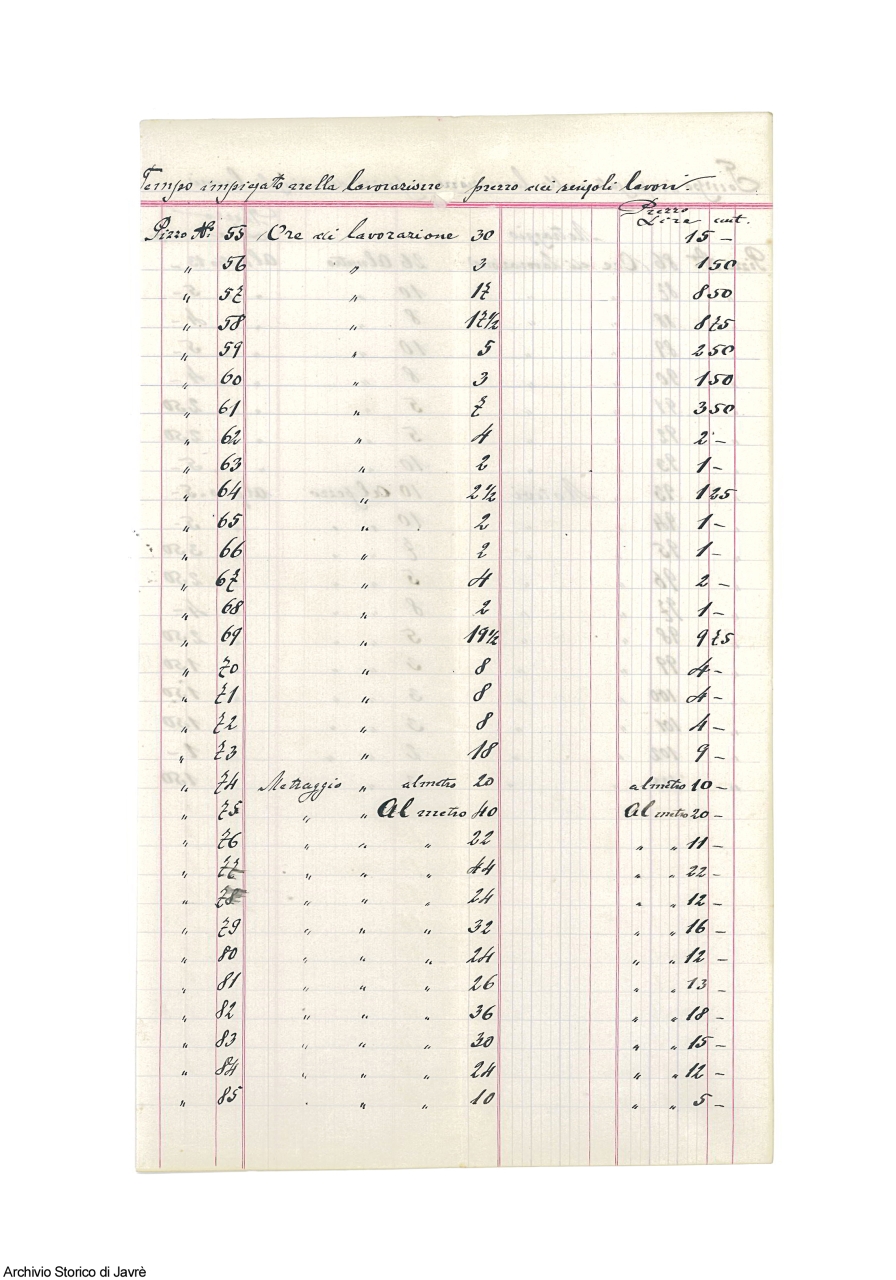 Tempo impiegato nella lavorazione prezzo dei singoli lavori.
Prezzo
Lire cent.
Pizzo N: 55 Ore di lavorazione 30 15 –
" 56 " 3 1 50
" 57 " 17 8 50
" 58 " 17 1/2 8 75
" 59 " 5 2 50
" 60 " 3 1 50
" 61 " 7 3 50
" 62 " 4 2 –
" 63 " 2 1 –
" 64 " 2 1/2 1 25
" 65 " 2 1 –
" 66 " 2 1 –
" 67 " 4 2 –
" 68 " 2 1 –
" 69 " 19 1/2 9 75
" 70 " 8 4 –
" 71 " 8 4 –
" 72 " 8 4 –
" 73 " 18 9 –
" 74 Metraggio " al metro 20 al metro 10 –
" 75 " " Al metro 40 Al metro 20 –
" 76 " " " 22 " " 11 –
" 77 " " " 44 " " 22 –
" 78 " " " 24 " " 12 –
" 79 " " " 32 " " 16 –
" 80 " " " 24 " " 12 –
" 81 " " " 26 " " 13 –
" 82 " " " 36 " " 18 –
" 83 " " " 30 " " 15 –
" 84 " " " 24 " " 12 –
" 85 " " " 10 " " 5 –
Archivio Storico di Javrè